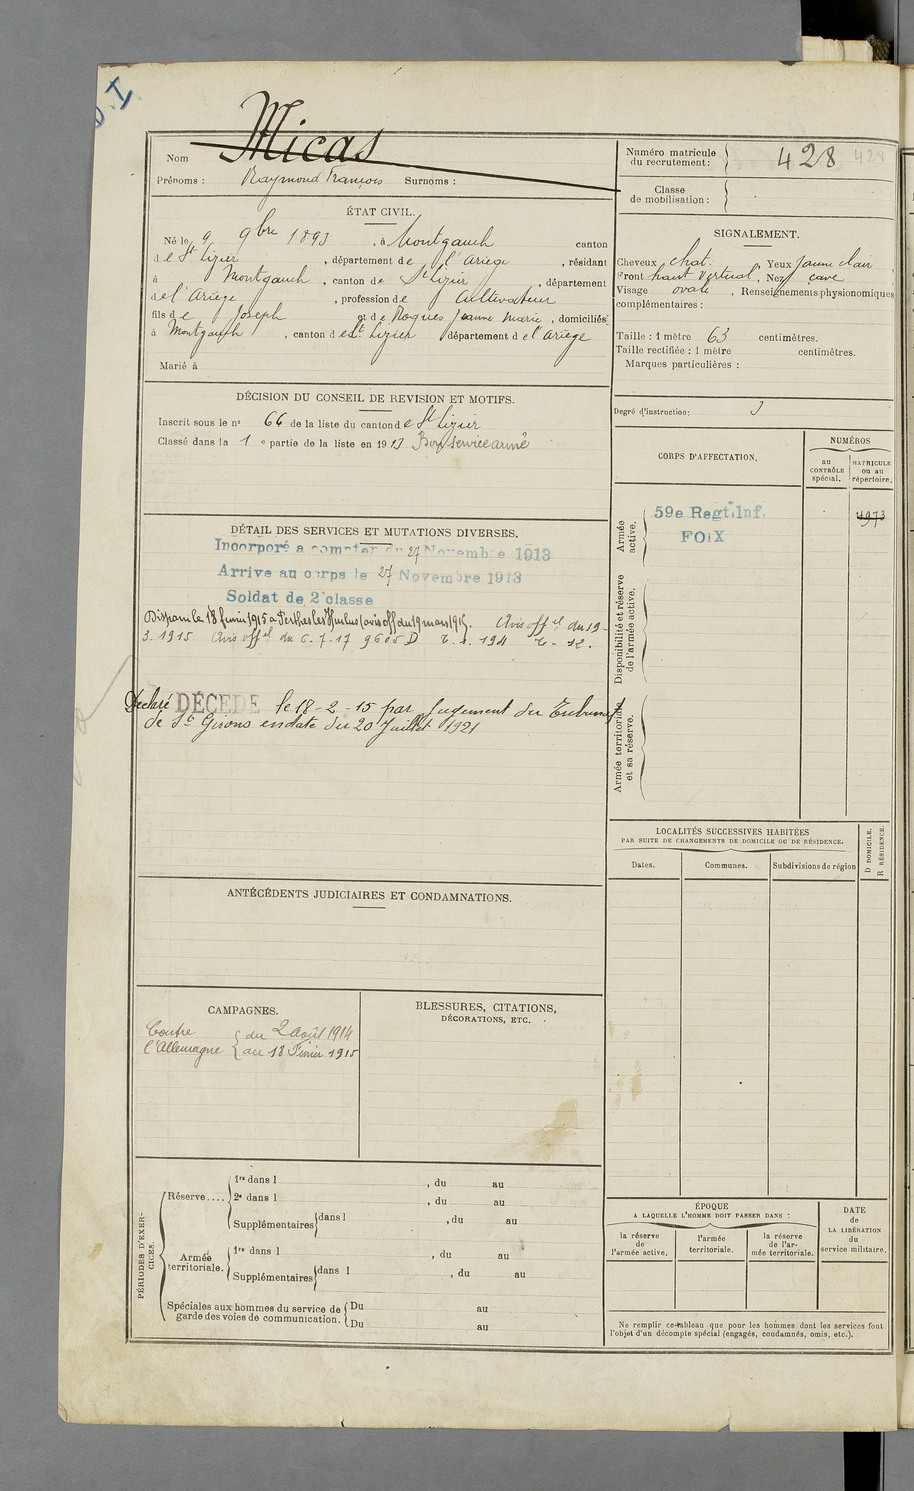 Nom Micas
Prénoms : Raymond François Surnoms :
Numéro matricule
du recrutement : 428 428
Classe
de mobilisation :
ÉTAT CIVIL.
Né le 9 9bre 1893, à Montgauch canton
de St Lizier, département de l'Ariège, résidant
à Montgauch, canton de St Lizier, département
de l'Ariège, profession de Cultivateur
fils de Joseph et de Roques Jeanne Marie, domiciliés
à Montgauch, canton de St Lizier département de l'Ariège
Marié à
SIGNALEMENT.
Cheveux chat. Yeux jaune clair,
Front haut vertical, Nez cave
Visage ovale, Renseignements physionomiques
complémentaires :
Taille : 1 mètre 63 centimètres.
Taille rectifiée : 1 mètre centimètres.
Marques particulières :
DÉCISION DU CONSEIL DE REVISION ET MOTIFS.
Inscrit sous le no 66 de la liste du canton de St Lizier
Classé dans la 1e partie de la liste en 1913 Bon service armé
Degré d'instruction : 3
CORPS D'AFFECTATION.
NUMÉROS
au
CONTRÔLE
spécial.
MATRICULE
ou au
répertoire.
Armée
active.
59e Regt. Inf.
FOIX
4973
Disponibilité et réserve
de l'armée active.
Armée territoriale
et sa réserve.
DÉTAIL DES SERVICES ET MUTATIONS DIVERSES.
Incorporé a compter du 27 Novembre 1913
Arrive au corps le 27 Novembre 1913
Soldat de 2e classe
Disparu le 18 février 1915 à Perthes les Hurlus (avis off du 19 mars 1915). Avis offel du 19-
3-1915 Avis offel du 6-7-17 9605 D
Déclaré DÉCÉDÉ le 18-2-15 par Jugement du Tribunal
de St Girons en date du 20 Juillet 1921
LOCALITÉS SUCCESSIVES HABITÉES
PAR SUITE DE CHANGEMENTS DE DOMICILE OU DE RÉSIDENCE.
Dates. Communes. Subdivisions de région
D DOMICILE.
R RÉSIDENCE.
ANTÉCÉDENTS JUDICIAIRES ET CONDAMNATIONS.
CAMPAGNES.
Contre
l'Allemagne
du 2 Août 1914
au 18 Février 1915
BLESSURES, CITATIONS,
DÉCORATIONS, ETC.
PÉRIODES D'EXER-
CICES.
Réserve....
1re dans l , du au
2e dans l , du au
Supplémentaires dans l , du au
Armée
territoriale.
1re dans l , du au
Supplémentaires dans l , du au
Spéciales aux hommes du service de
garde des voies de communication.
Du au
Du au
ÉPOQUE
A LAQUELLE L'HOMME DOIT PASSER DANS :
la réserve
de
l'armée active.
l'armée
territoriale.
la réserve
de l'ar-
mée territoriale.
DATE
de
LA LIBÉRATION
du
service militaire.
Ne remplir ce tableau que pour les hommes dont les services font
l'objet d'un décompte spécial (engagés, condamnés, omis, etc.).